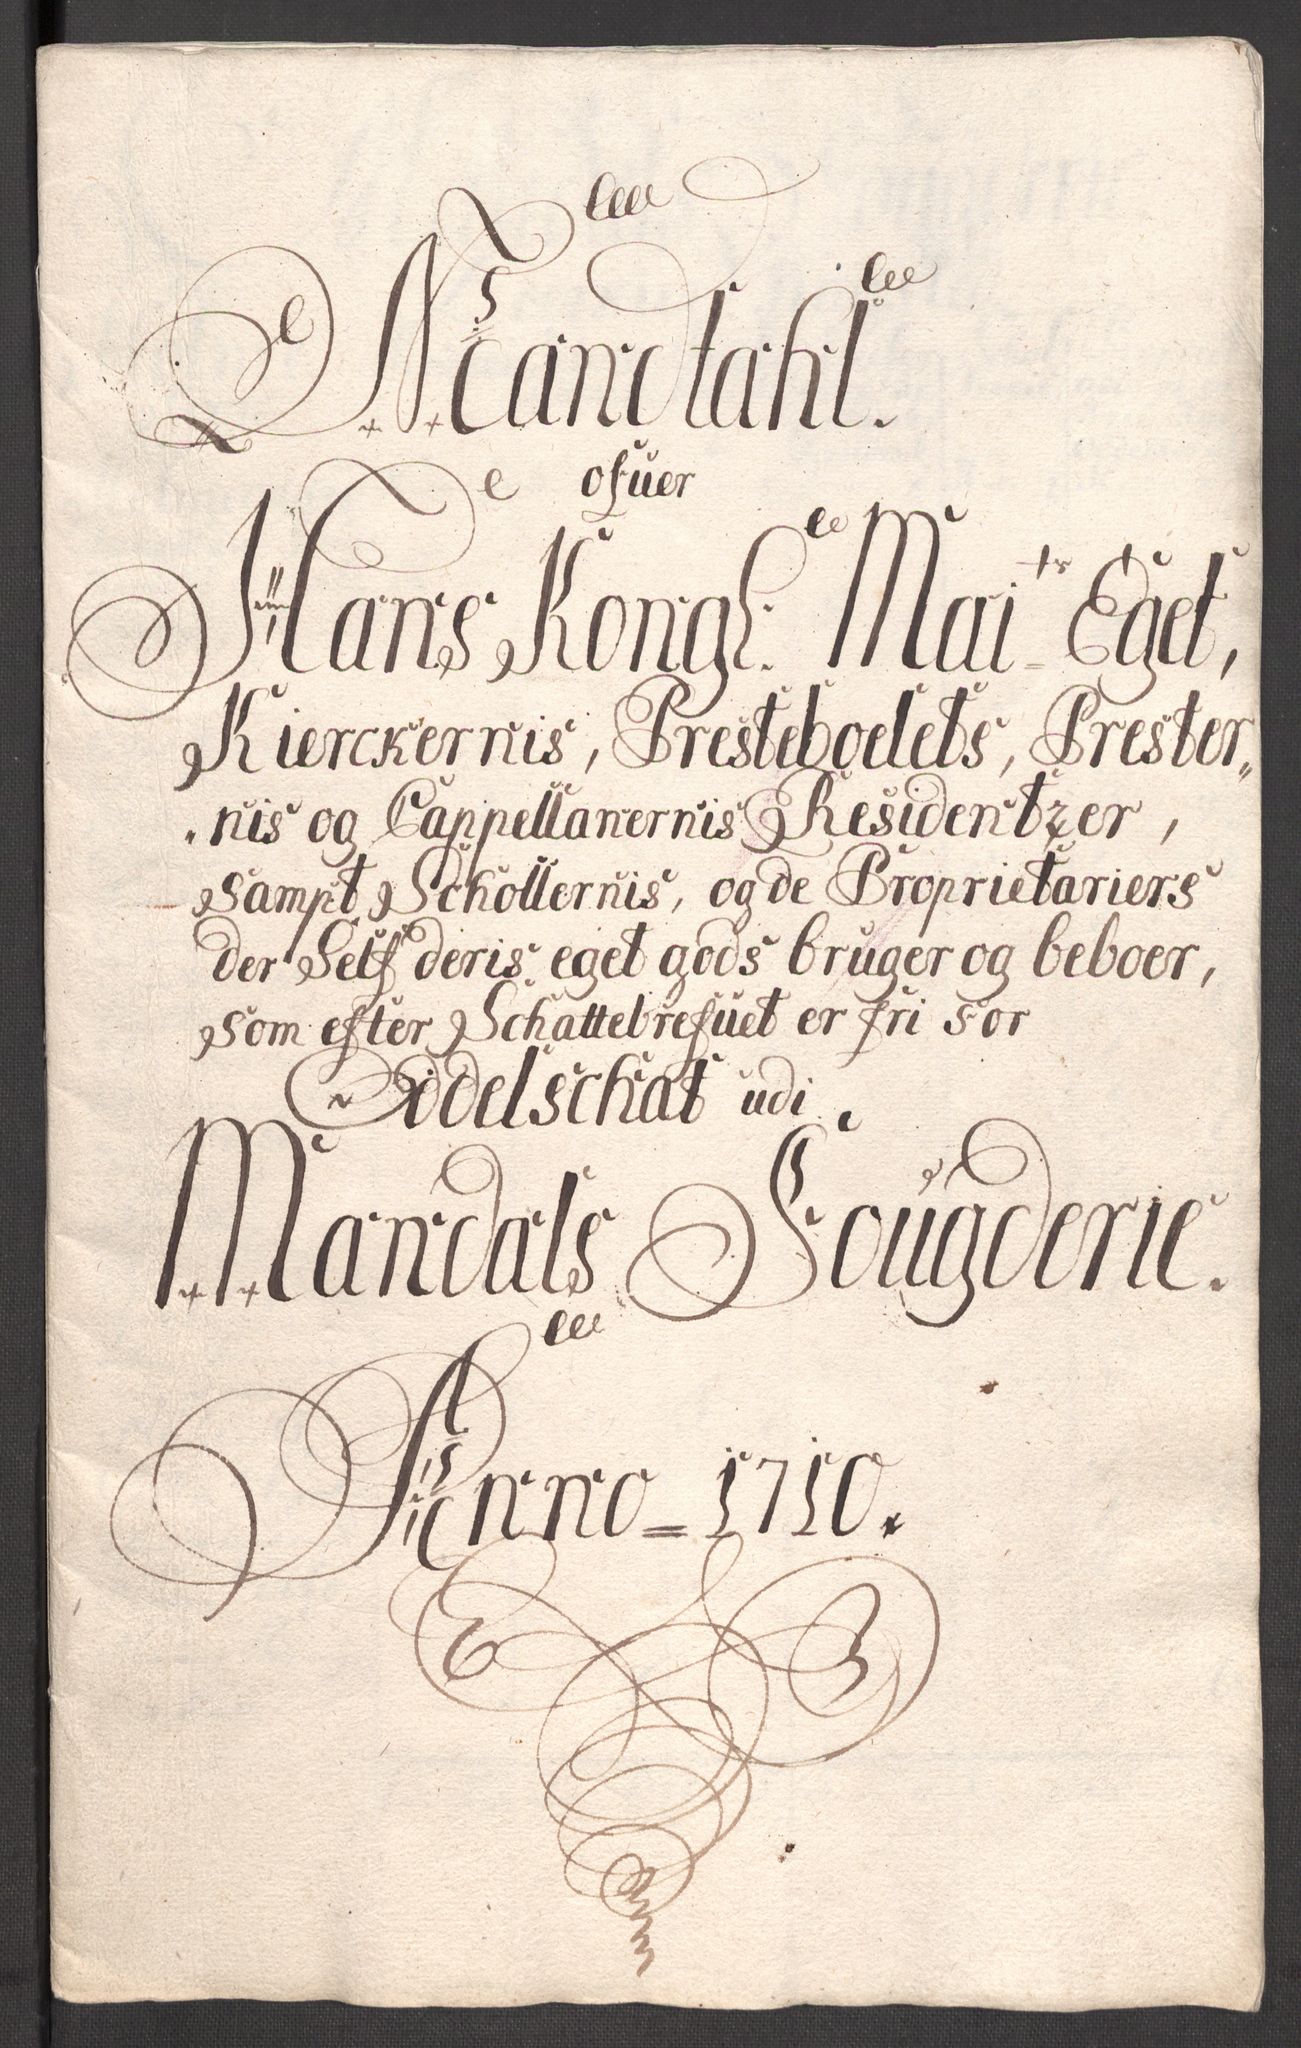 Mandtahl.
ofuer
Hans Kongl. Mai.ts Eget,
Kierckernis, Presteboelets, Prester„
nis og Cappellanernis Residentzer,
sampt Schollernis, og de Proprietariers
der Self deris eget gods bruger og beboer,
som efter Schattebrefuet er fri for
Oddelschat udi
Mandals Fougderie.
Anno = 1710.